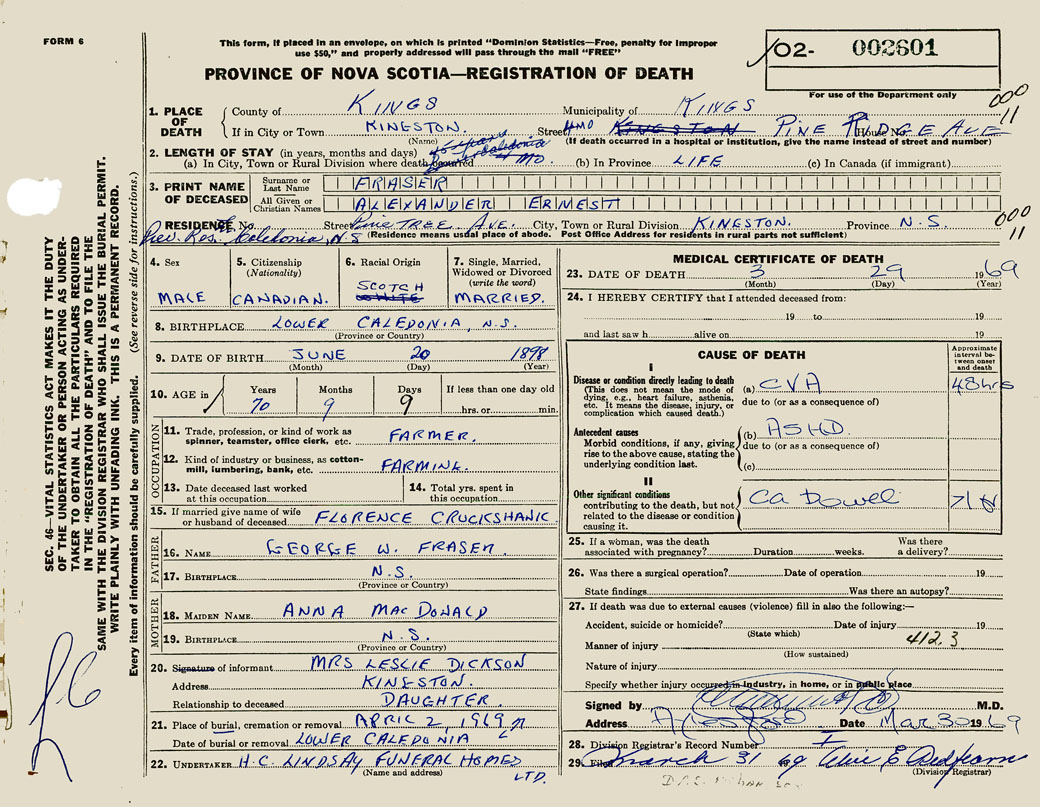 FORM 6
This form, if placed in an envelope, on which is printed "Dominion Statistics—Free, penalty for improper
use $50," and properly addressed will pass through the mail "FREE"
O2- 002601
For use of the Department only
PROVINCE OF NOVA SCOTIA—REGISTRATION OF DEATH
000
11
1. PLACE OF DEATH
County of KINGS Municipality of KINGS
If in City or Town KINGSTON. Street HMO KINGSTON PINE RIDGE AVE House No.
(Name) (If death occurred in a hospital or institution, give the name instead of street and number)
2. LENGTH OF STAY (in years, months and days)
(a) In City, Town or Rural Division where death occurred MO. (b) In Province LIFE (c) In Canada (if immigrant)
3. PRINT NAME OF DECEASED
Surname or Last Name FRASER
All Given or Christian Names ALEXANDER ERNEST
RESIDENCE No. Street Pine TREE AVE. City, Town or Rural Division KINGSTON. Province N.S
000
11
Prev. Res. Caledonia, N.S (Residence means usual place of abode. Post Office Address for residents in rural parts not sufficient)
4. Sex
MALE
5. Citizenship
(Nationality)
CANADIAN.
6. Racial Origin
SCOTCH
WHITE
7. Single, Married,
Widowed or Divorced
(write the word)
MARRIED.
8. BIRTHPLACE LOWER CALEDONIA, N.S.
(Province or Country)
9. DATE OF BIRTH JUNE 20 1898
(Month) (Day) (Year)
10. AGE in
Years Months Days If less than one day old
70 9 9 hrs. or min.
OCCUPATION
11. Trade, profession, or kind of work as
spinner, teamster, office clerk, etc. FARMER.
12. Kind of industry or business, as cotton-
mill, lumbering, bank, etc. FARMINK.
13. Date deceased last worked
at this occupation
14. Total yrs. spent in
this occupation
15. If married give name of wife
or husband of deceased FLORENCE CRUCKSHANK
FATHER
16. NAME GEORGE W. FRASER.
17. BIRTHPLACE N.S.
(Province or Country)
MOTHER
18. MAIDEN NAME ANNA MACDONALD
19. BIRTHPLACE N.S.
(Province or Country)
20. Signature of informant MRS LESLIE DICKSON
Address KINGSTON.
Relationship to deceased DAUGHTER
21. Place of burial, cremation or removal APRIL 2, 1969
Date of burial or removal LOWER CALEDONIA
22. UNDERTAKER H.C. LINDSAY FUNERAL HOMES
(Name and address) LTD.
MEDICAL CERTIFICATE OF DEATH
23. DATE OF DEATH 3 29 1969
(Month) (Day) (Year)
24. I HEREBY CERTIFY that I attended deceased from:
19 to 19
and last saw h alive on 19
CAUSE OF DEATH
Approximate interval between onset and death
I
Disease or condition directly leading to death
(This does not mean the mode of
dying, e.g., heart failure, asthenia,
etc. It means the disease, injury, or
complication which caused death.)
(a) CVA 48 hrs
due to (or as a consequence of)
Antecedent causes
Morbid conditions, if any, giving
rise to the above cause, stating the
underlying condition last.
(b) ASHD.
due to (or as a consequence of)
(c)
II
Other significant conditions
contributing to the death, but not
related to the disease or condition
causing it.
Ca bowel
25. If a woman, was the death
associated with pregnancy? Duration weeks. Was there
a delivery?
26. Was there a surgical operation? Date of operation 19
State findings Was there an autopsy?
27. If death was due to external causes (violence) fill in also the following:—
Accident, suicide or homicide? Date of injury 19
(State which)
412.3
Manner of injury
(How sustained)
Nature of injury
Specify whether injury occurred in industry, in home, or in public place
Signed by M.D.
Address Date Mar 30 1969
28. Division Registrar's Record Number
29. Filed March 31 69
(Division Registrar)
SEC. 46—VITAL STATISTICS ACT MAKES IT THE DUTY
OF THE UNDERTAKER OR PERSON ACTING AS UNDER-
TAKER TO OBTAIN ALL THE PARTICULARS REQUIRED
IN THE "REGISTRATION OF DEATH" AND TO FILE THE
SAME WITH THE DIVISION REGISTRAR WHO SHALL ISSUE THE BURIAL PERMIT.
WRITE PLAINLY WITH UNFADING INK. THIS IS A PERMANENT RECORD.
Every item of information should be carefully supplied. (See reverse side for instructions.)